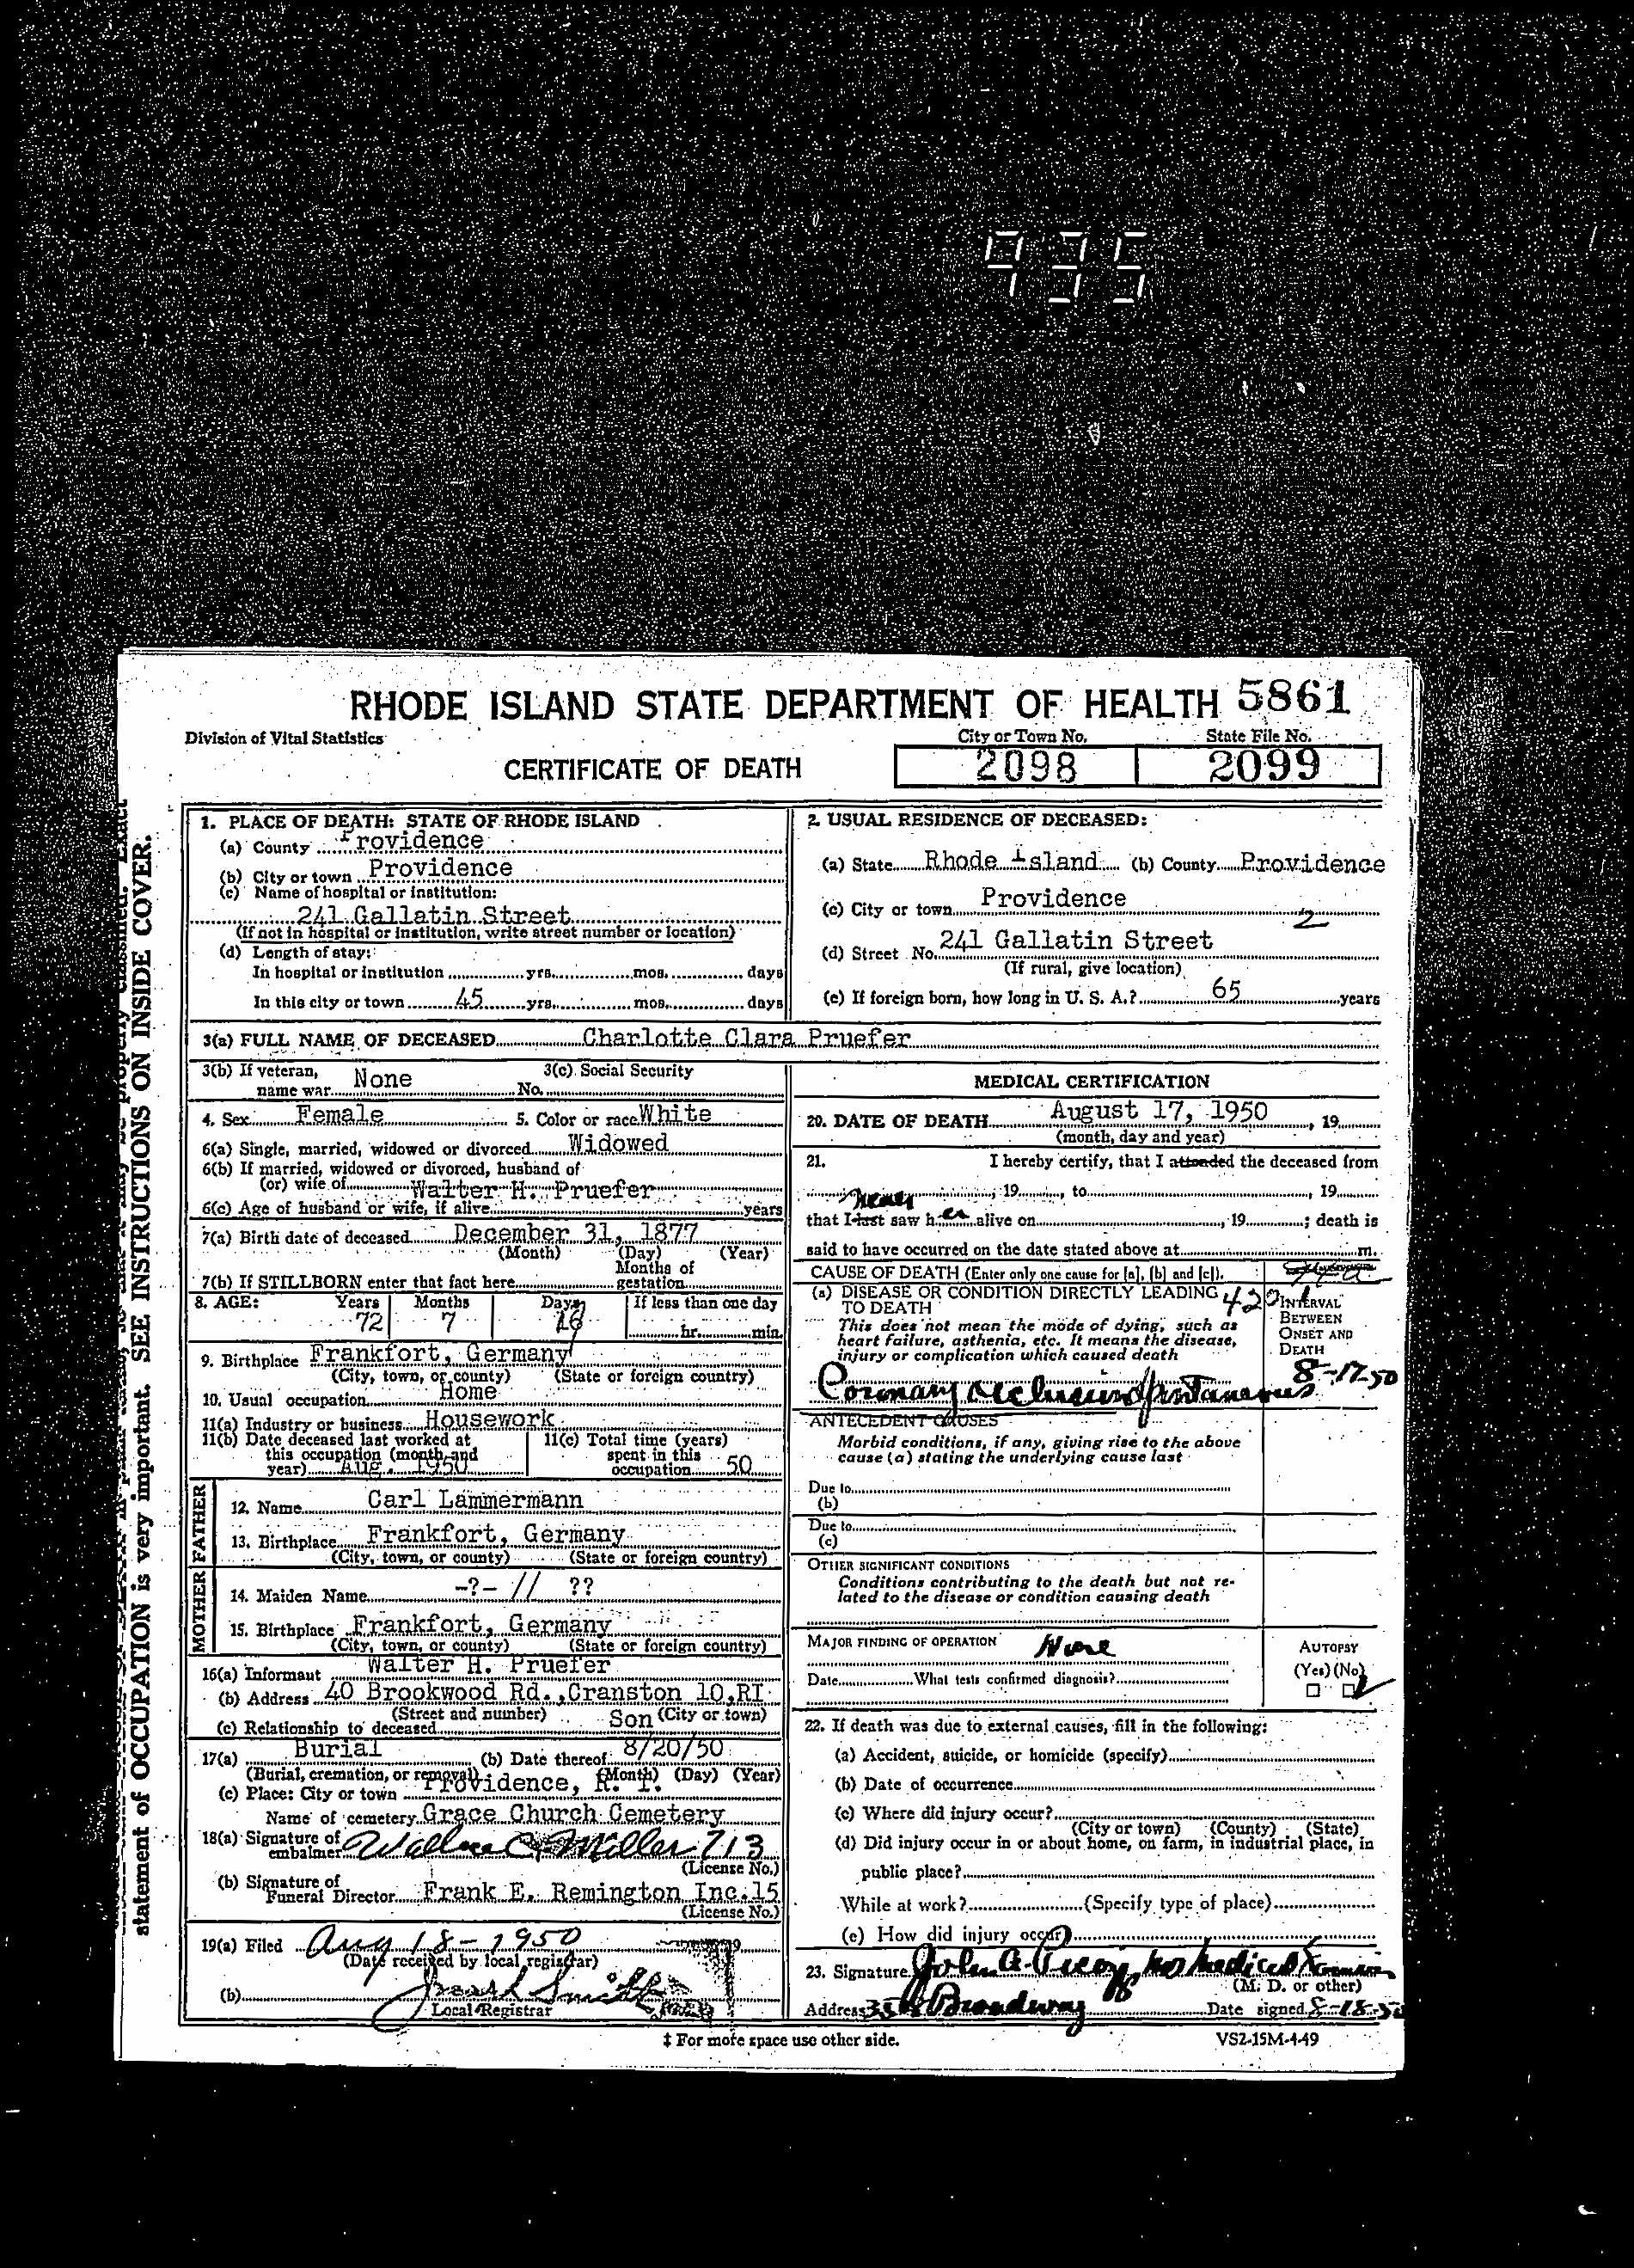 935
RHODE ISLAND STATE DEPARTMENT OF HEALTH 5861
Division of Vital Statistics
City or Town No. State File No.
CERTIFICATE OF DEATH 2098 2099
statement of OCCUPATION is very important. SEE INSTRUCTIONS ON INSIDE COVER.
1. PLACE OF DEATH: STATE OF RHODE ISLAND
(a) County Providence
(b) City or town Providence
(c) Name of hospital or institution:
241 Gallatin Street
(If not in hospital or institution, write street number or location)
(d) Length of stay:
In hospital or institution yrs. mos. days
In this city or town 45 yrs. mos. days
2. USUAL RESIDENCE OF DECEASED:
(a) State Rhode Island (b) County Providence
(c) City or town Providence
2
(d) Street No. 241 Gallatin Street
(If rural, give location)
(e) If foreign born, how long in U. S. A.? 65 years
3(a) FULL NAME OF DECEASED Charlotte Clara Pruefer
3(b) If veteran, name war None
3(c) Social Security No.
4. Sex Female 5. Color or race White
6(a) Single, married, widowed or divorced Widowed
6(b) If married, widowed or divorced, husband of
(or) wife of Walter H. Pruefer
6(c) Age of husband or wife, if alive years
7(a) Birth date of deceased December 31, 1877
(Month) (Day) (Year)
7(b) If STILLBORN enter that fact here Months of gestation
8. AGE: Years Months Days If less than one day
72 7 16 hr. min.
9. Birthplace Frankfort, Germany
(City, town, or county) (State or foreign country)
10. Usual occupation Home
11(a) Industry or business Housework
11(b) Date deceased last worked at this occupation (month and year) Aug. 1950
11(c) Total time (years) spent in this occupation 50
FATHER
12. Name Carl Lammermann
13. Birthplace Frankfort, Germany
(City, town, or county) (State or foreign country)
MOTHER
14. Maiden Name -?- // ??
15. Birthplace Frankfort, Germany
(City, town, or county) (State or foreign country)
16(a) Informant Walter H. Pruefer
(b) Address 40 Brookwood Rd., Cranston 10, RI
(Street and number) (City or town)
(c) Relationship to deceased Son
17(a) Burial (b) Date thereof 8/20/50
(Burial, cremation, or removal) (Month) (Day) (Year)
(c) Place: City or town Providence, R. I.
Name of cemetery Grace Church Cemetery
18(a) Signature of embalmer Wallace C. Miller 713
(License No.)
(b) Signature of Funeral Director Frank E. Remington Inc. 15
(License No.)
19(a) Filed Aug 18-1950 19
(Date received by local registrar)
(b) Smith
Local Registrar
MEDICAL CERTIFICATION
20. DATE OF DEATH August 17, 1950, 19
(month, day and year)
21. I hereby certify, that I attended the deceased from
, 19, to , 19
never
that I last saw her alive on , 19; death is
said to have occurred on the date stated above at m.
CAUSE OF DEATH (Enter only one cause for [a], [b] and [c]).
(a) DISEASE OR CONDITION DIRECTLY LEADING TO DEATH 4201
This does not mean the mode of dying, such as
heart failure, asthenia, etc. It means the disease,
injury or complication which caused death
INTERVAL BETWEEN ONSET AND DEATH
Coronary occlusion spontaneous 8-17-50
ANTECEDENT CAUSES
Morbid conditions, if any, giving rise to the above
cause (a) stating the underlying cause last
Due to
(b)
Due to
(c)
OTHER SIGNIFICANT CONDITIONS
Conditions contributing to the death but not re-
lated to the disease or condition causing death
MAJOR FINDING OF OPERATION None
AUTOPSY
(Yes) (No)
Date What tests confirmed diagnosis?
22. If death was due to external causes, fill in the following:
(a) Accident, suicide, or homicide (specify)
(b) Date of occurrence
(c) Where did injury occur?
(City or town) (County) (State)
(d) Did injury occur in or about home, on farm, in industrial place, in
public place?
While at work? (Specify type of place)
(e) How did injury occur?
23. Signature John A. MD Medical Examiner
(M. D. or other)
Address Broadway Date signed 8-18-50
‡ For more space use other side.
VS2-15M-4-49